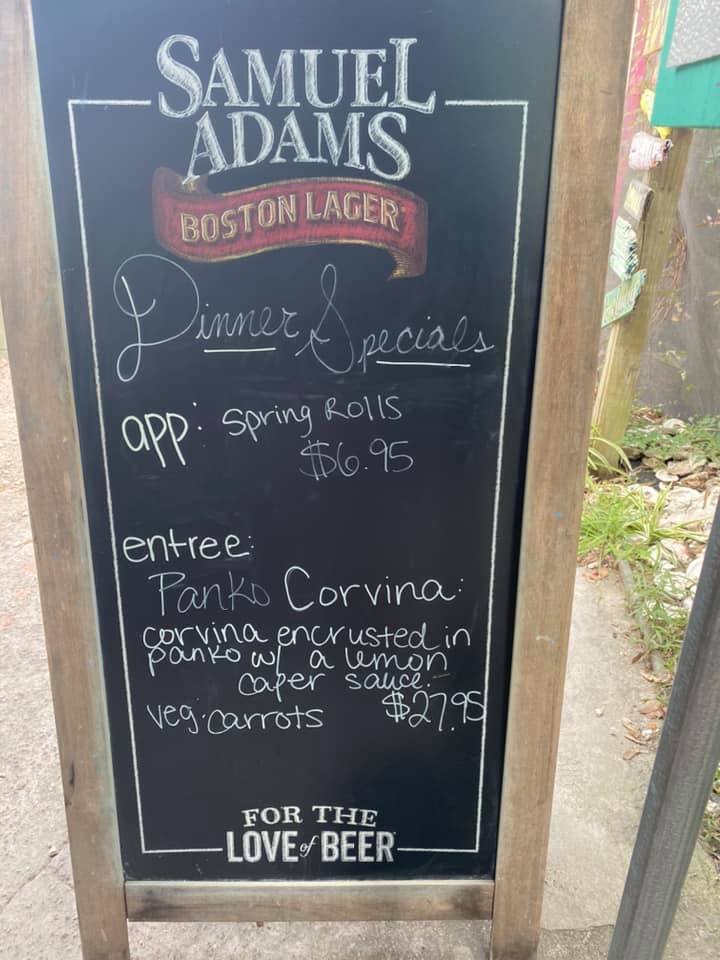 SAMUEL
ADAMS
BOSTON LAGER
Dinner Specials
app: Spring Rolls
$6.95
entree:
Panko Corvina:
corvina encrusted in
panko w/ a lemon
caper sauce.
$27.95
veg: carrots
FOR THE
LOVE of BEER